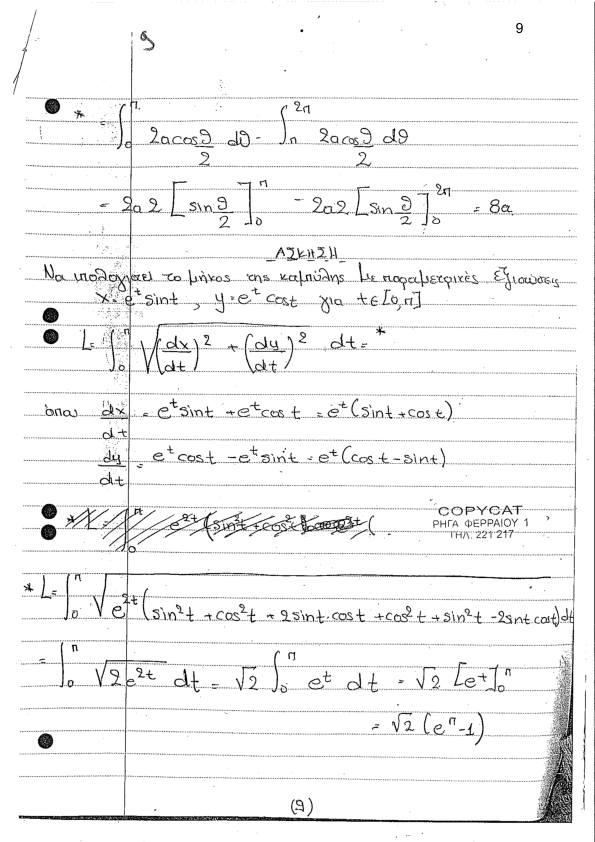 9
9
* = ∫₀^π 2acos ϑ/2 dϑ - ∫_π^2π 2acos ϑ/2 dϑ
= 2a2 [sin ϑ/2]₀^π - 2a2 [sin ϑ/2]₀^2π = 8a
ΑΣΚΗΣΗ
Να υπολογιστεί το μήκος της καμπύλης με παραμετρικές εξισώσεις
x = e^t sint , y = e^t cost για t∈[0,π]
L = ∫₀^π √((dx/dt)² + (dy/dt)²) dt = *
όπου dx/dt = e^t sint + e^t cost = e^t (sint + cost)
dy/dt = e^t cost - e^t sint = e^t (cost - sint)
COPYCAT
ΡΗΓΑ ΦΕΡΡΑΙΟΥ 1
ΤΗΛ. 221 217
* L = ∫₀^π √(e^2t (sin²t + cos²t + 2sint·cost + cos²t + sin²t - 2sint cost)) dt
= ∫₀^π √(2e^2t) dt = √2 ∫₀^π e^t dt = √2 [e^t]₀^π
= √2 (e^π - 1)
(9)